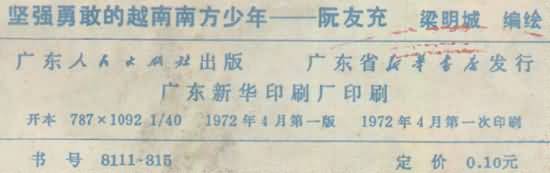 坚强勇敢的越南南方少年——阮友充 梁明城 编绘
广东人民出版社出版 广东省新华书店发行
广东新华印刷厂印刷
开本 787×1092 1/40 1972年4月第一版 1972年4月第一次印刷
书号 8111·815 定价 0.10元